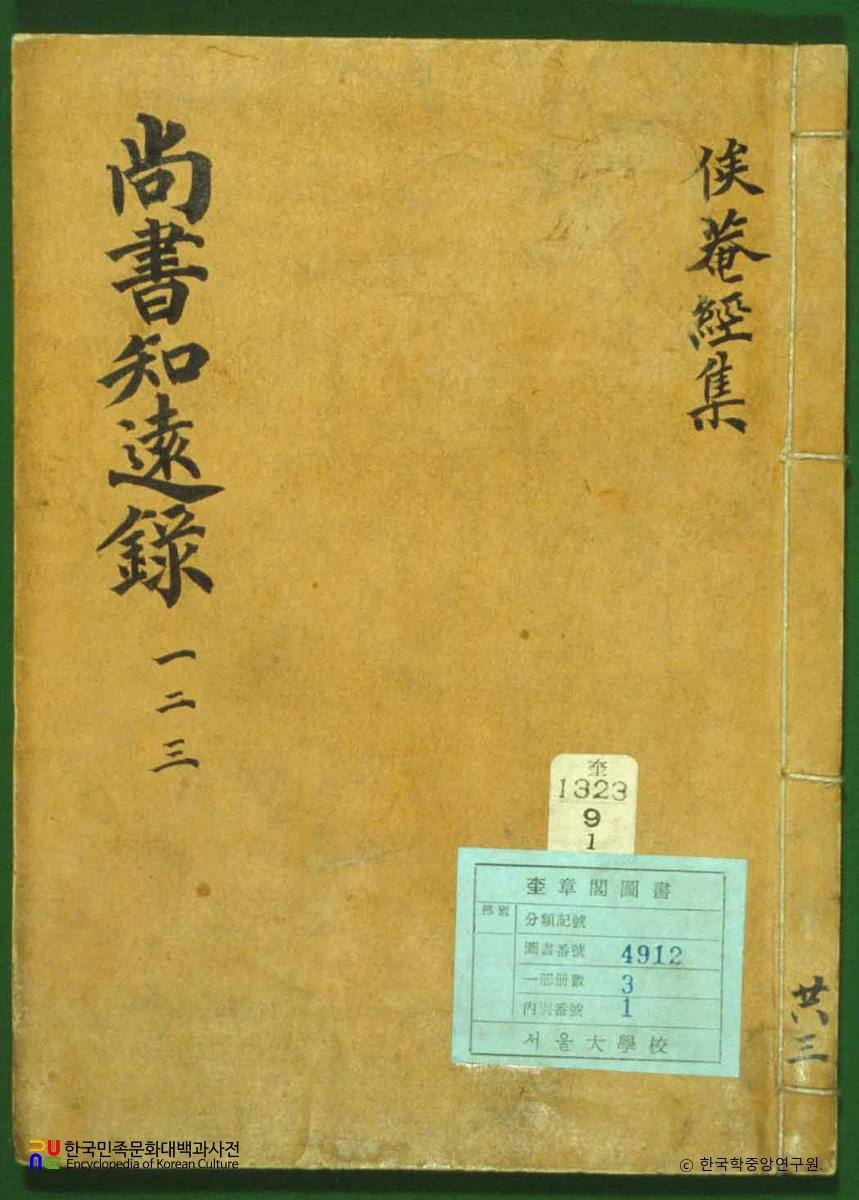 俟菴經集
尚書知遠錄
一二三
奎
1323
9
1
奎章閣圖書
部別
分類記號
圖書番號 4912
一部册數 3
內別番號 1
서울大學校
共三
한국민족문화대백과사전
Encyclopedia of Korean Culture
© 한국학중앙연구원.